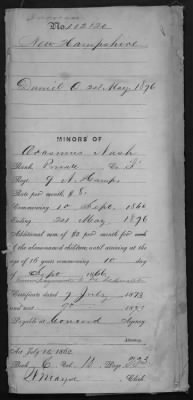 No. 112120
New Hampshire
Daniel O. 21st May 1876
MINORS OF
Erasmus Nash
Rank Private Co. F
Regt. 9 N. Hamps
Rate per month $8.
Commencing 10 Sept. 1866
Ending 21st May 1876
Additional sum of $2 per month for each
of the abovenamed children until arriving at the
age of 16 years commencing 10 day
of Sept 1866
Certificate dated 9 July 1873
and sent
Payable at Concord Agency
Attorney.
Act July 14, 1862.
Book Vol. Page 223
Clerk.